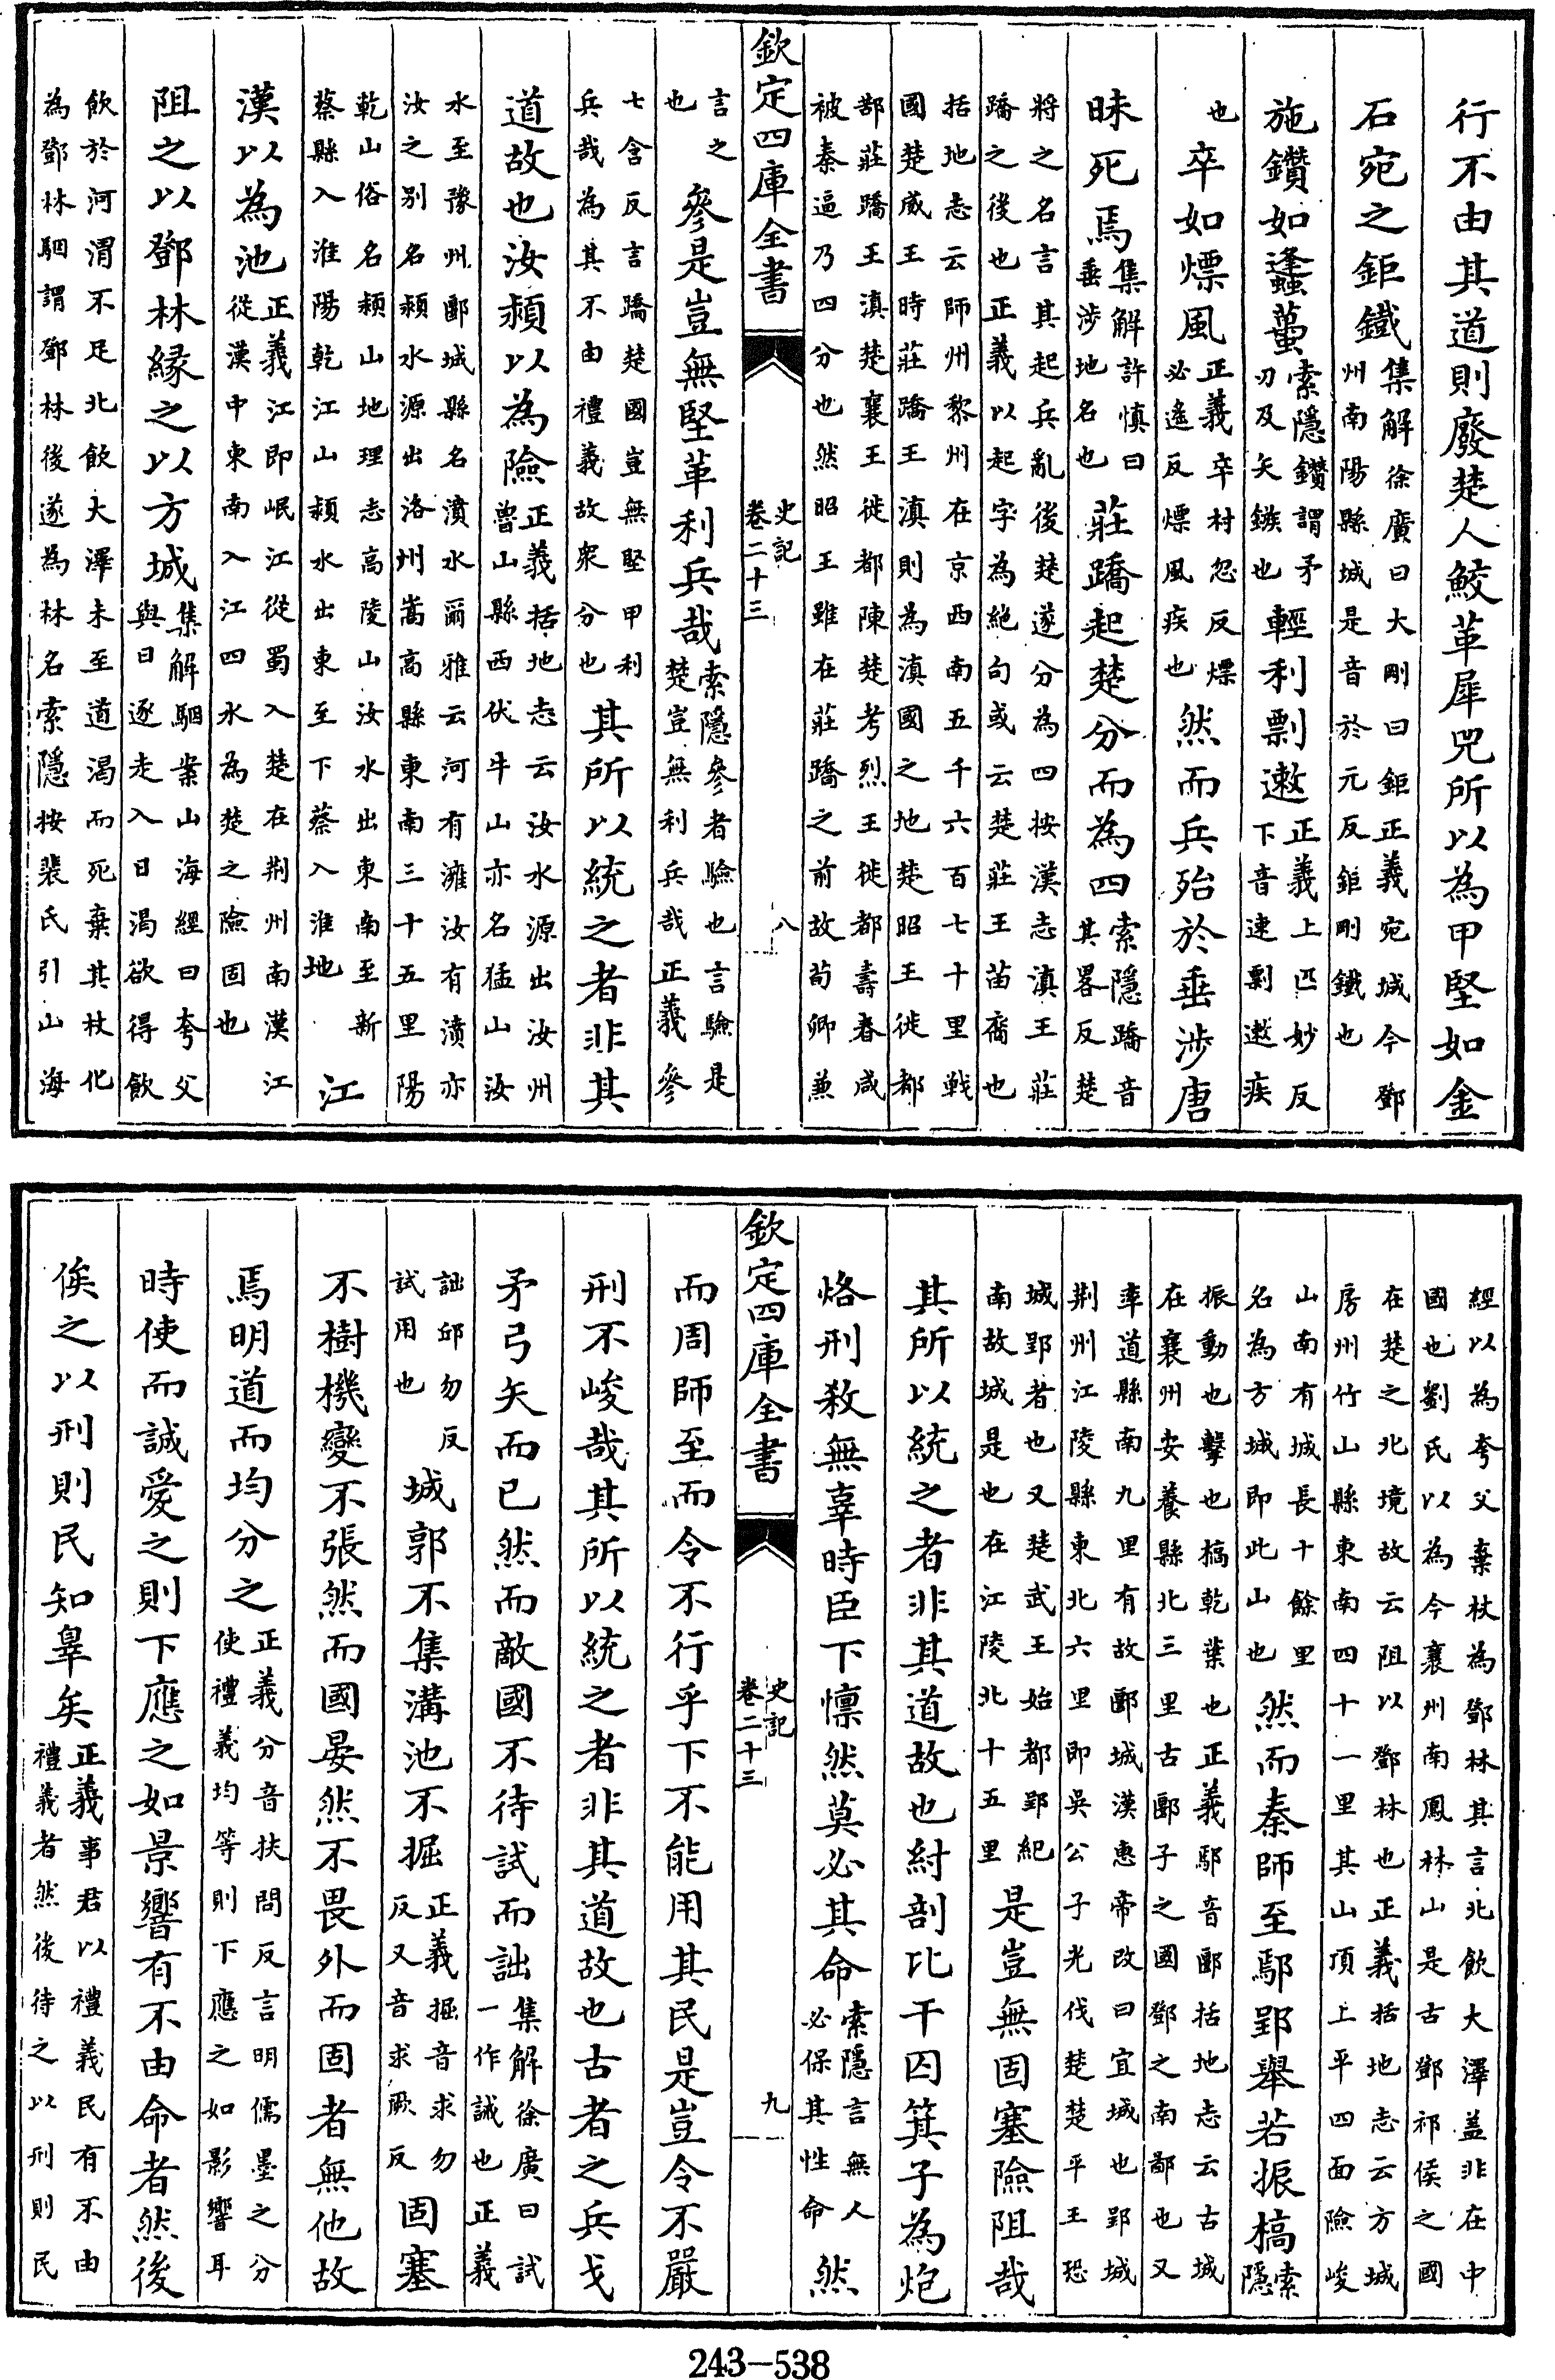 行不由其道則廢楚人鮫革犀兕所以為甲堅如金
石宛之鉅鐵集解徐廣曰大剛曰鉅正義宛城今鄧州南陽縣城是音於元反鉅剛鐵也
施鑽如蠭蠆索隱鑽謂矛刃及矢鏃也輕利剽遬正義上匹妙反下音速剽遬疾
也卒如熛風正義卒村忽反熛必遙反熛風疾也然而兵殆於垂涉唐
昧死焉集解許慎曰垂涉地名也莊蹻起楚分而為四索隱蹻音其畧反楚
將之名言其起兵亂後楚遂分為四按漢志滇王莊蹻之後也正義以起字為絶句或云楚莊王苗裔也
括地志云師州黎州在京西南五千六百七十里戰國楚威王時莊蹻王滇則為滇國之地楚昭王徙都
鄀莊蹻王滇楚襄王徙都陳楚考烈王徙都壽春咸被秦逼乃四分也然昭王雖在莊蹻之前故荀卿兼
欽定四庫全書 史記卷二十三 八
言之也參是豈無堅革利兵哉索隱參者驗也言驗是楚豈無利兵哉正義參
七含反言蹻楚國豈無堅甲利兵哉為其不由禮義故衆分也其所以統之者非其
道故也汝潁以為險正義括地志云汝水源出汝州魯山縣西伏牛山亦名猛山汝
水至豫州郾城縣名濆水爾雅云河有澭汝有濆亦汝之别名潁水源出洛州嵩高縣東南三十五里陽
乾山俗名潁山地理志高陵山汝水出東南至新蔡縣入淮陽乾江山潁水出東至下蔡入淮地江
漢以為池正義江即岷江從蜀入楚在荆州南漢江從漢中東南入江四水為楚之險固也
阻之以鄧林緣之以方城集解駰案山海經曰夸父與日逐走入日渴欲得飲
飲於河渭不足北飲大澤未至道渴而死棄其杖化為鄧林駰謂鄧林後遂為林名索隱按裴氏引山海
經以為夸父棄杖為鄧林其言北飲大澤盖非在中國也劉氏以為今襄州南鳳林山是古鄧祁侯之國
在楚之北境故云阻以鄧林也正義括地志云方城房州竹山縣東南四十一里其山頂上平四面險峻
山南有城長十餘里名為方城即此山也然而秦師至鄢郢舉若振槁索隱
振動也擊也槁乾葉也正義鄢音郾括地志云古城在襄州安養縣北三里古郾子之國鄧之南鄙也又
率道縣南九里有故郾城漢惠帝改曰宜城也郢城荆州江陵縣東北六里即吳公子光伐楚楚平王恐
城郢者也又楚武王始都郢紀南故城是也在江陵北十五里是豈無固塞險阻哉
其所以統之者非其道故也紂剖比干囚箕子為炮
烙刑殺無辜時臣下懔然莫必其命索隱言無人必保其性命然
欽定四庫全書 史記卷二十三 九
而周師至而令不行乎下不能用其民是豈令不嚴
刑不峻哉其所以統之者非其道故也古者之兵戈
矛弓矢而已然而敵國不待試而詘集解徐廣曰試一作誡也正義
詘邱勿反試用也城郭不集溝池不掘正義掘音求勿反又音求厥反固塞
不樹機變不張然而國晏然不畏外而固者無他故
焉明道而均分之正義分音扶問反言明儒墨之分使禮義均等則下應之如影響耳
時使而誠愛之則下應之如景響有不由命者然後
俟之以刑則民知辠矣正義事君以禮義民有不由禮義者然後待之以刑則民
243-538